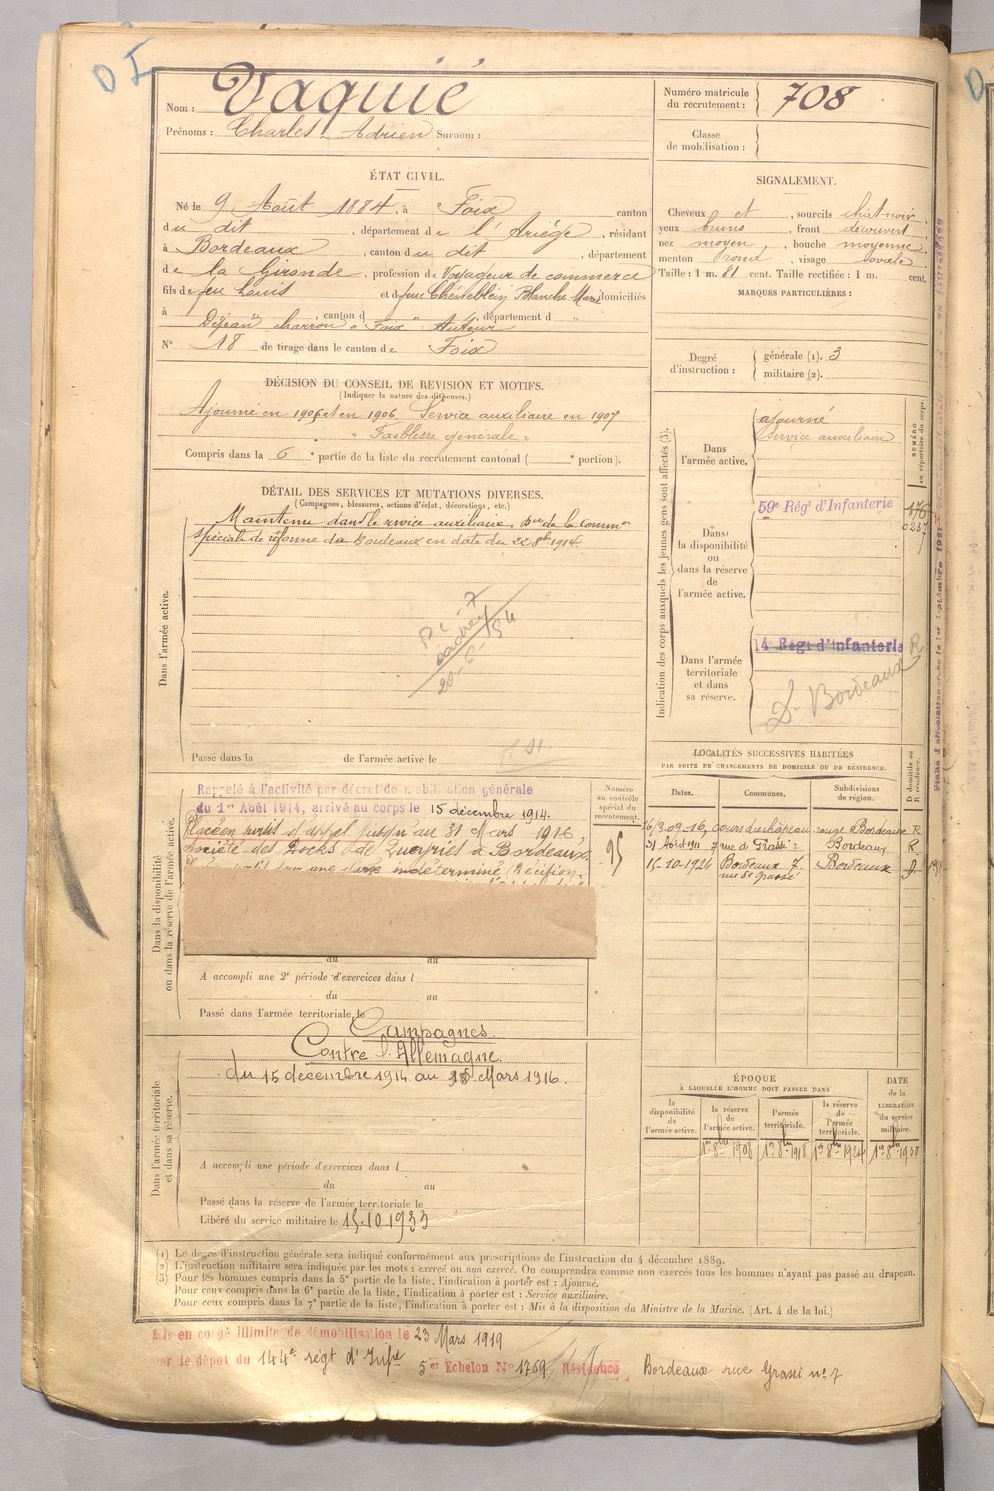 D I
Nom : Vaquié
Prénoms : Charles, Adrien Surnom :
Numéro matricule du recrutement : 708
Classe de mobilisation :
ÉTAT CIVIL.
Né le 9 Août 1884, à Foix canton
du dit, département de l'Ariége, résidant
à Bordeaux, canton du dit, département
de la Gironde, profession de Voyageur de commerce
fils de feu Louis et de feue Blanche Marie domiciliés
à , canton d , département d "
Déjean charron à Foix Auteur
N° 18 de tirage dans le canton de Foix
SIGNALEMENT.
Cheveux et , sourcils chât noir,
yeux bruns, front découvert
nez moyen, bouche moyenne
menton rond, visage ovale.
Taille : 1 m. 81 cent. Taille rectifiée : 1 m. cent.
MARQUES PARTICULIÈRES :
Degré d'instruction : générale (1). 3
militaire (2).
DÉCISION DU CONSEIL DE REVISION ET MOTIFS.
(Indiquer la nature des dispenses.)
Ajourné en 1905 et en 1906. Service auxiliaire en 1907
" Faiblesse générale "
Compris dans la 6e partie de la liste du recrutement cantonal ( e portion).
DÉTAIL DES SERVICES ET MUTATIONS DIVERSES.
(Campagnes, blessures, actions d'éclat, décorations, etc.)
Dans l'armée active.
Maintenu dans le service auxiliaire, Don de la Common
spéciale de réforme de Bordeaux en date du 22 8bre 1914.
Passé dans la de l'armée active le
Indication des corps auxquels les jeunes gens sont affectés (3).
Dans l'armée active.
ajourné
Service auxiliaire
NUMÉRO au répertoire du corps.
Dans la disponibilité ou dans la réserve de l'armée active.
59e Rég' d'Infanterie
Dans l'armée territoriale et dans sa réserve.
14e Régt d'Infanterie R
Dn Bordeaux
LOCALITÉS SUCCESSIVES HABITÉES
PAR SUITE DE CHANGEMENTS DE DOMICILE OU DE RÉSIDENCE.
Dates. Communes. Subdivisions de région. D domicile ou R résidence.
16/3.09 - 16, cours du chapeau rouge Bordeaux R
31 Août 1911 7 rue de Grassi Bordeaux R
15-10-1924 Bordeaux 7. rue de Grassi Bordeaux D
Dans la disponibilité ou dans la réserve de l'armée active.
Rappelé à l'activité par décret de mobilisation générale
du 1er Août 1914, arrivé au corps le 15 décembre 1914.
Placé en sursis d'appel jusqu'au 31 Mars 1916,
Société des Docks de Queyries à Bordeaux.
une durée indéterminée
Numéro au contrôle spécial du recrutement.
95
du au
A accompli une 2e période d'exercices dans l
du au
Passé dans l'armée territoriale le
Dans l'armée territoriale et dans sa réserve.
Campagnes.
Contre l'Allemagne.
du 15 décembre 1914 au 18 Mars 1916.
A accompli une période d'exercices dans l
du au
Passé dans la réserve de l'armée territoriale le
Libéré du service militaire le 15-10-1933
ÉPOQUE
À LAQUELLE L'HOMME DOIT PASSER DANS
la disponibilité de l'armée active. la réserve de l'armée active. l'armée territoriale. la réserve de l'armée territoriale.
DATE de la LIBÉRATION du service militaire.
1er 8bre 1908 1er 8bre 1918 1er 8bre 1924 1er 8bre 1930
(1) Le degré d'instruction générale sera indiqué conformément aux prescriptions de l'instruction du 4 décembre 1889.
(2) L'instruction militaire sera indiquée par les mots : exercé ou non exercé. On comprendra comme non exercés tous les hommes n'ayant pas passé au drapeau.
(3) Pour les hommes compris dans la 5e partie de la liste, l'indication à porter est : Ajourné.
Pour ceux compris dans la 6e partie de la liste, l'indication à porter est : Service auxiliaire.
Pour ceux compris dans la 7e partie de la liste, l'indication à porter est : Mis à la disposition du Ministre de la Marine. (Art. 4 de la loi.)
Mis en congé illimité de démobilisation le 23 Mars 1919
par le dépot du 144e régt d'Infie 5er Echelon No 1769 Résidence Bordeaux rue Grassi no 7